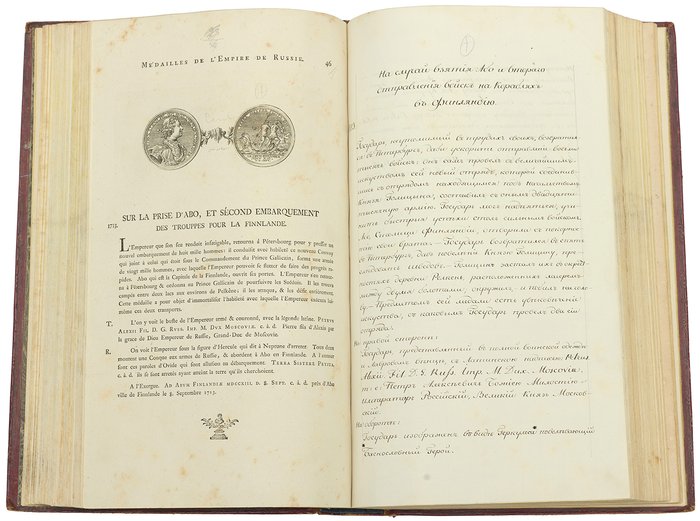 MÉDAILLES DE L'EMPIRE DE RUSSIE. 46
SUR LA PRISE D'ABO, ET SÉCOND EMBARQUEMENT
1713. DES TROUPPES POUR LA FINNLANDE.
L'Empereur que son feu rendoit infatigable, retourna à Pétersbourg pour y presser un
nouvel embarquement de huit mille hommes: il conduisit avec habileté ce nouveau Convoy
qui joint à celui qui étoit sous le Commandement du Prince Gallicain, forma une armée
de vingt mille hommes, avec laquelle l'Empereur pouvoit se flatter de faire des progrès ra-
pides. Abo qui est la Capitale de la Finnlande, ouvrit ses portes. L'Empereur s'en retour-
na à Pétersbourg & ordonna au Prince Gallicain de poursuivre les Suédois. Il les trouva
campés entre deux lacs aux environs de Pelkène: il les attaqua, & les défit entièrement.
Cette médaille a pour objet d'immortaliser l'habileté avec laquelle l'Empereur exécuta lui-
même ces deux transports.
T. L'on y voit le buste de l'Empereur armé & couronné, avec la légende latine. PETRUS
ALEXII FIL. D. G. RUSS. IMP. M. DUX MOSCOVIÆ. c. à d. Pierre fils d'Alexis par
la grace de Dieu Empereur de Russie, Grand-Duc de Moscovie.
R. On voit l'Empereur sous la figure d'Hercule qui dit à Neptune d'arrêter. Tous deux
montent une Conque aux armes de Russie, & abordent à Abo en Finnlande. A l'entour
sont ces paroles d'Ovide qui font allusion au débarquement. TERRA SISTERE PETITA
c. à d. ils se sont arretés ayant atteint la terre qu'ils cherchoient.
A l'Exergue. AD ABUM FINLANDIÆ MDCCXIII. D. 8. SEPT. c. à d. près d'Abo
ville de Finnlande le 8. Septembre 1713.
На случай взятія Або и втораго
отправленія войскъ на Корабляхъ
въ Финляндію.
Государь, неутомимый въ трудахъ своихъ, возвратил-
ся въ Петербургъ, дабы ускорить отправленіе восьми
войскъ: Онъ самъ провелъ съ величайшимъ
искуствомъ сей новый отрядъ, который соединив-
шись съ отрядомъ находящимся подъ начальствомъ
Князя Голицына, составилъ съ онымъ двадцати-
тысячную армію. Государь могъ надеяться,
быстрые успехи столь сильнымъ войскомъ.
Або, Столица Финляндіи, отворила съ покорно-
стію свои врата. Государь возвратился опять
въ Петербургъ, давъ повеленіе Князю Голицыну, пре-
следовать Шведовъ. Голицынъ засталъ ихъ въ окре-
стностяхъ деревни Пелкене расположенныхъ лагеремъ
между двумя
искуства, съ каковымъ Государь провелъ два сіи
отряда.
На правой стороне:
Государь представленный въ полной воинской одежде
и Лавровомъ венце, съ Латинскою надписью: Petrus
Alexii Fil. D. G. Russ. Imp. M. Dux. Moscoviæ,
т. е. Петръ Алексеевичъ Божіею Милостію
Императоръ Россійскій, Великій Князь Москов-
скій.
На оборотъ:
Государь изображенъ въ виде Геркулеса повелевающій
Баснословный Герой.